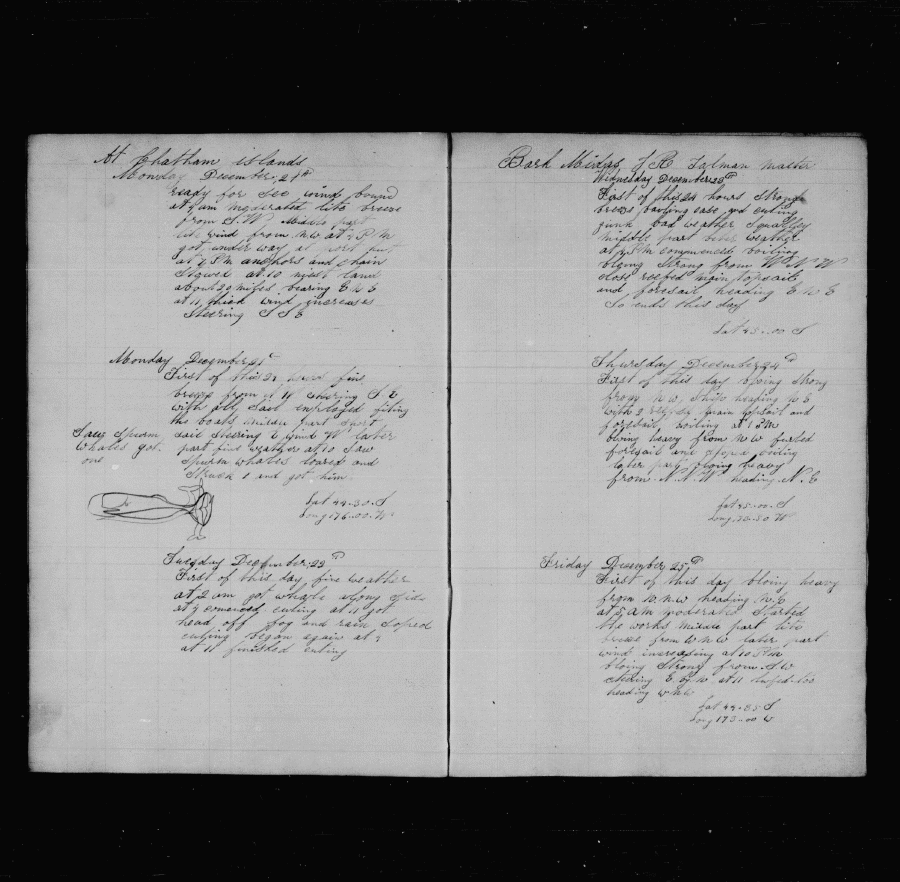 At Chatham islands
Monday December 21th
ready for See wind bound
at 4 am moderated lite breese
from S.W Middle part
lite wind from N W at 2 P M
got under way at
at 4 P M anchors and chain
Stowed at 10 land
about 20 miles bearing E N E
at 11 thick wind increases
Steering S S E
Monday December 21th
First of this 24 hours fine
breese from W Steering S.E
with all Sail employed fiting
the boats midden part Short
Saw Spurm
sail Steering E wind W later
Whales got
part fine weather at 10 Saw
one
Spurm whales loared and
Struck 1 and got him.
Lat 44-30.S
Long 176-00.W
Tuesday December 22th
First of this day fine weather
at 2 am got whale along side
at 4 comenced cuting at 11 got
head off fog and rain Stoped
cutting began again at
at 11 finished cuting
Bark Midas J R Talman Master
Wednesday December 23th
First of this 24 hours Strong
brese bailing case and cuting
junk bad weather Squalley
middle part weather
at 4 P M commenced boiling
bloing Strong from W N W
close reefed main topsail
and foresail heading E N E
So ends this day
Lat 45-00 S
Thursday December 24th
First of this day bloing Strong
from N W Ship heading N E
with main topsail and
foresail boiling at 1 P M
bloing heavy from N W furled
foresail and stoped boiling
later part bloing heavy
from N.N.W heading N.E
Lat 45-00.S
Long W
Friday December 25th
First of this day bloing heavy
from N.N.W heading N.E
at 5 A M moderate Started
the works Middle part lite
breese from W N W later part
wind increasing at 10 P M
bloing Strong from S.W
Steering E. by N at 11
heading W N W
Lat 44-35 S
Long 173-00 W